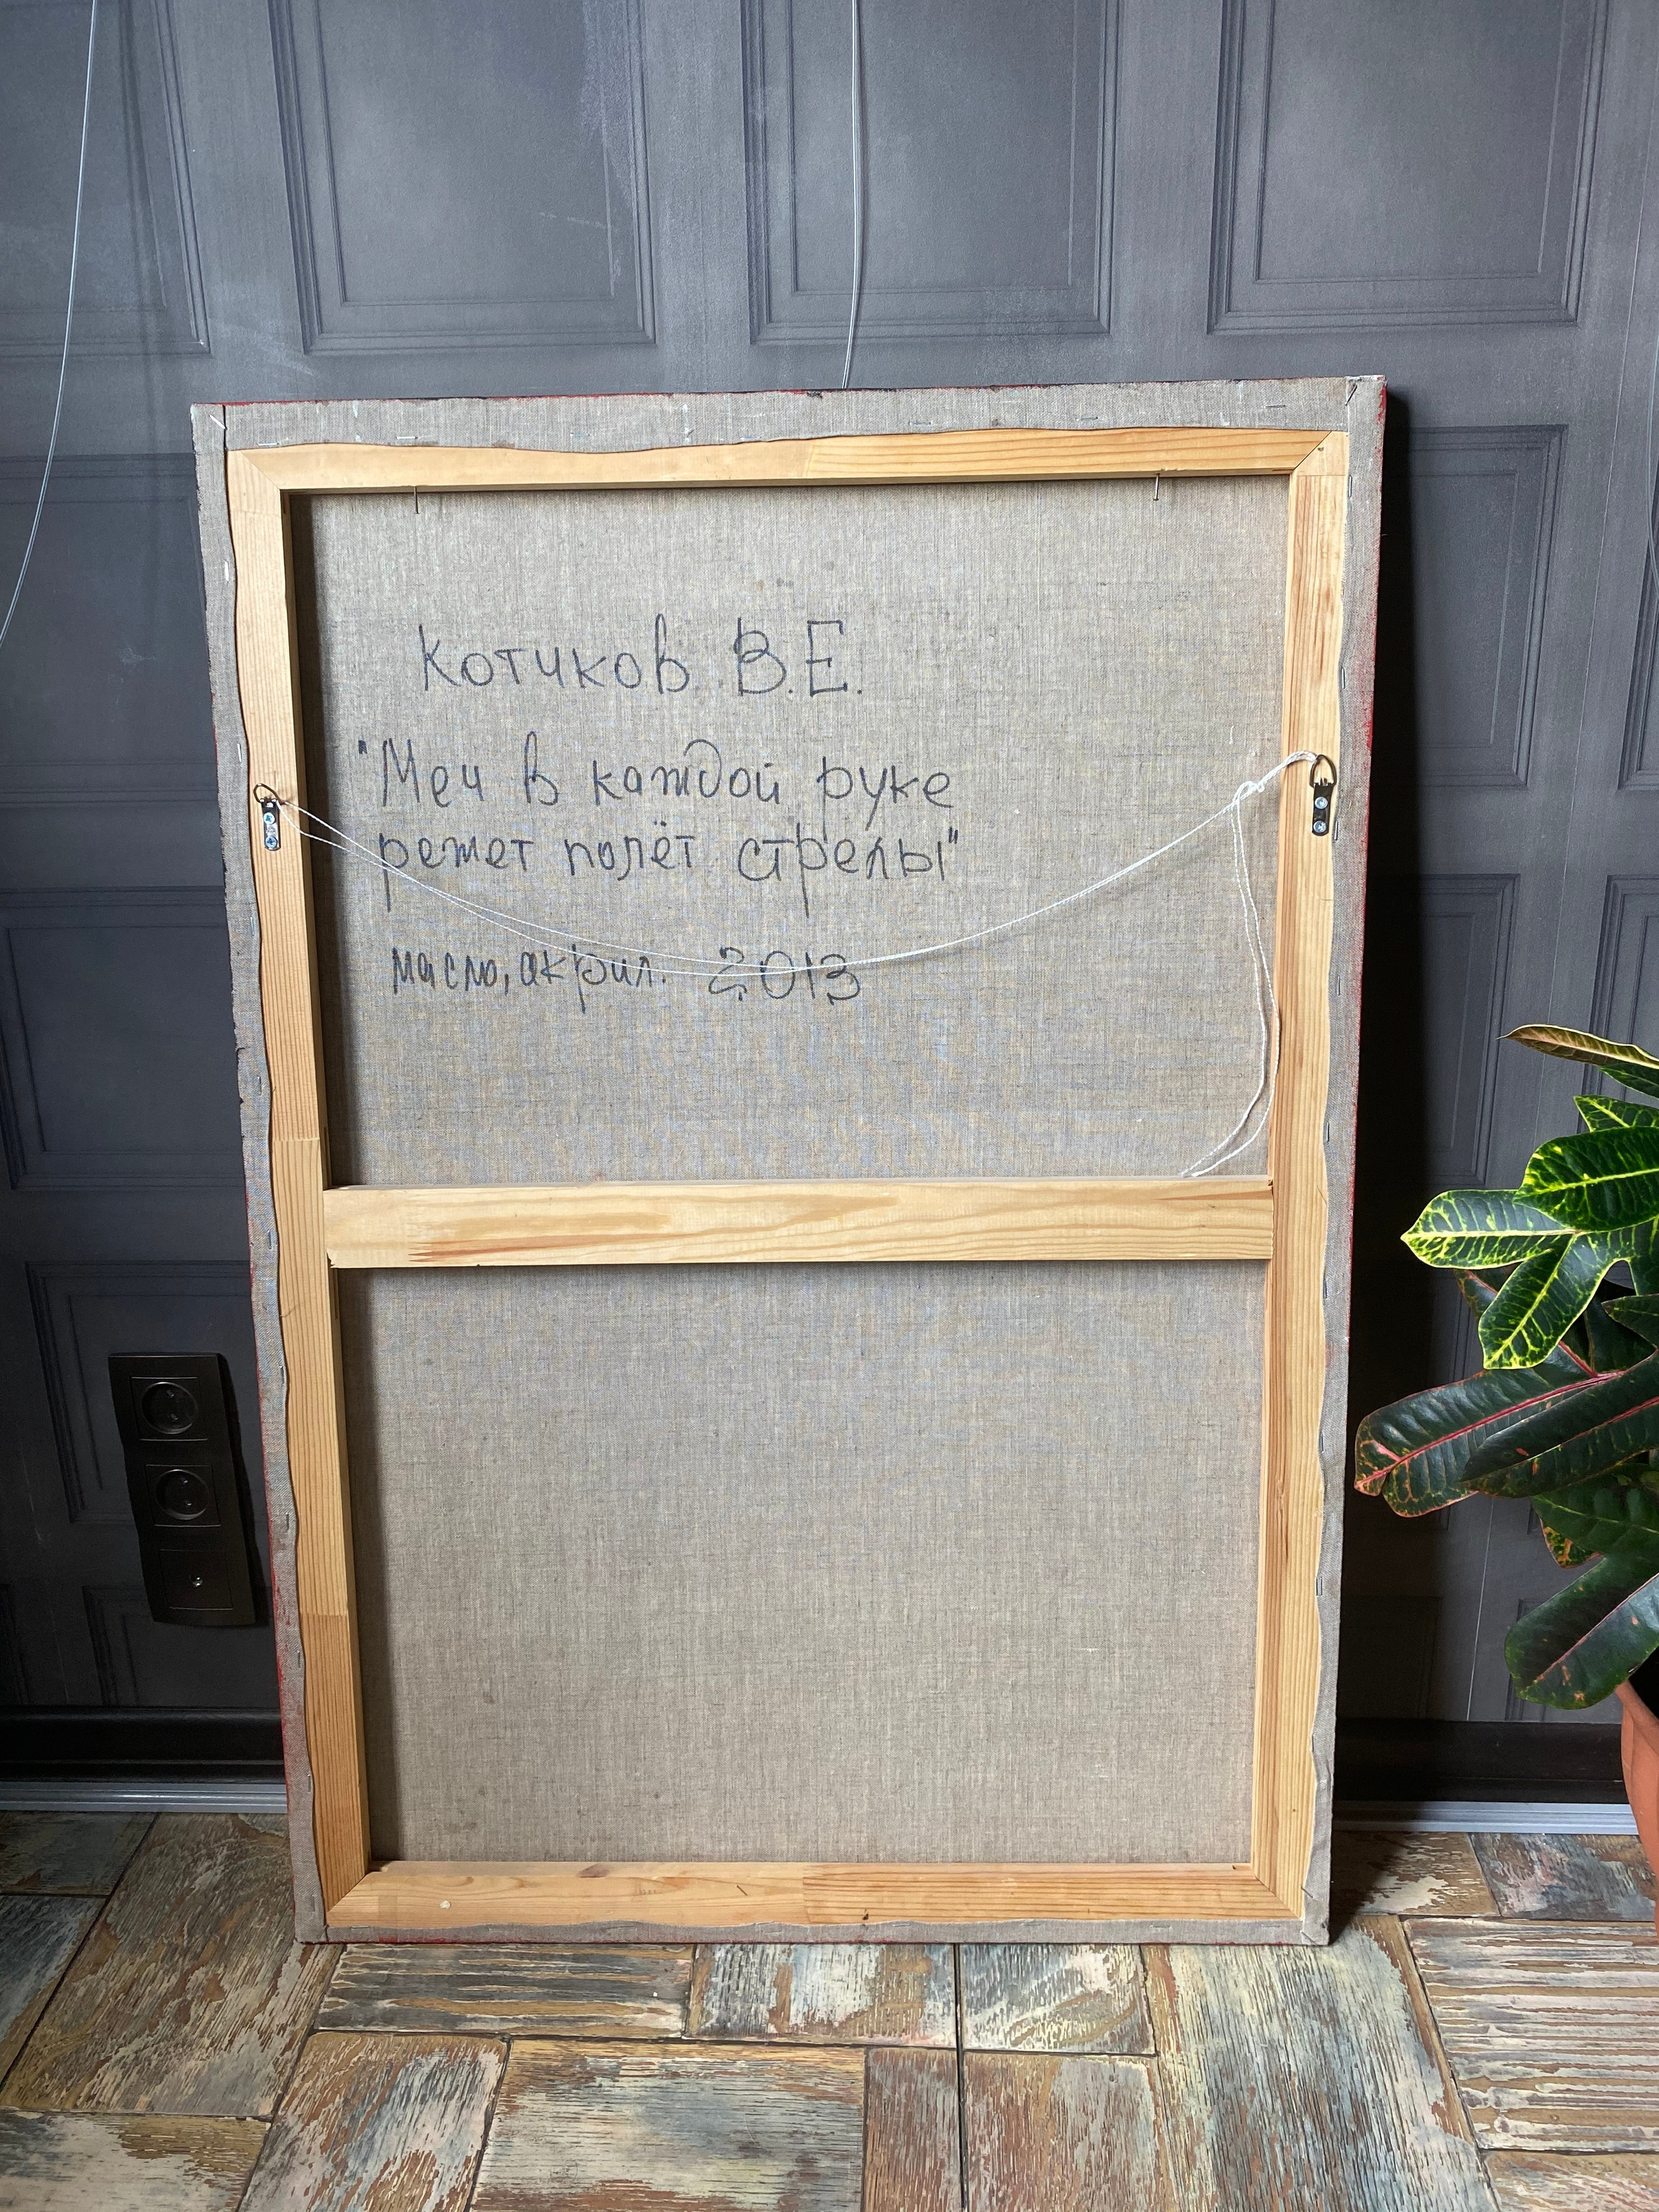 Котчков В.Е.
"Меч в каждой руке
режет полёт стрелы"
масло, акрил. 2013